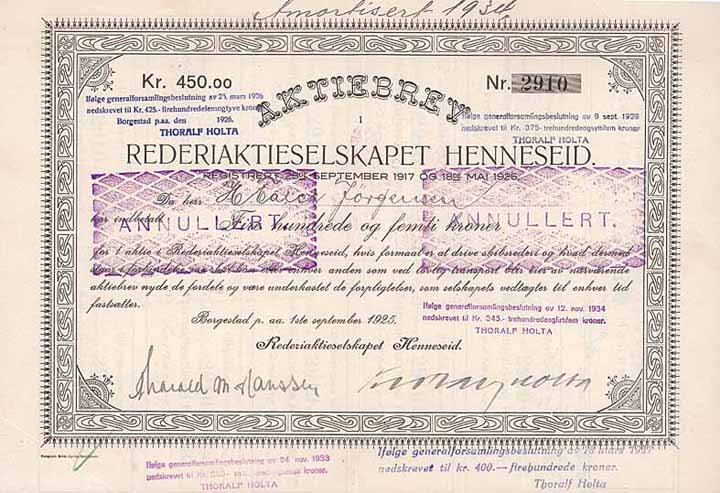 Amortisert 1934
Kr. 450.00
Nr. 2910
Ifølge generalforsamlingsbeslutning av 23, mars 1926
nedskrevet til Kr. 425.- firehundredefemogtyve kroner
Borgestad p.aa. den 1926.
THORALF HOLTA
AKTIEBREV
I
Ifølge generalforsamlingsbeslutning av 9 sept. 1929
nedskrevet til Kr. 375- trehundredeogsyttifem kroner
THORALF HOLTA
REDERIAKTIESELSKAPET HENNESEID.
REGISTRERT 28DE SEPTEMBER 1917 OG 18DE MAI 1925.
Da herr Jörgensen
har indbetalt Fire hundrede og femti kroner
ANNULLERT.
ANNULLERT.
for 1 aktie i Rederiaktieselskapet Henneseid, hvis formaal er at drive skibsrederi og hvad dermed
staar i forbindelse, saa skal han eller enhver anden som ved lovlig transport blir eier av nærværende
aktiebrev nyde de fordele og være underkastet de forpligtelser, som selskapets vedtægter til enhver tid
fastsætter.
Ifølge generalforsamlingsbeslutning av 12. nov. 1934
nedskrevet til Kr. 345.- trehundredeogførtifem kroner.
THORALF HOLTA
Borgestad p. aa. 1ste september 1925.
Rederiaktieselskapet Henneseid.
Ifølge generalforsamlingsbeslutning av 24 nov. 1933
nedskrevet til Kr. kroner.
THORALF HOLTA
Ifølge generalforsamlingsbeslutning av mars
nedskrevet til kr. 400.— firehundrede kroner.
Thoralf Holta